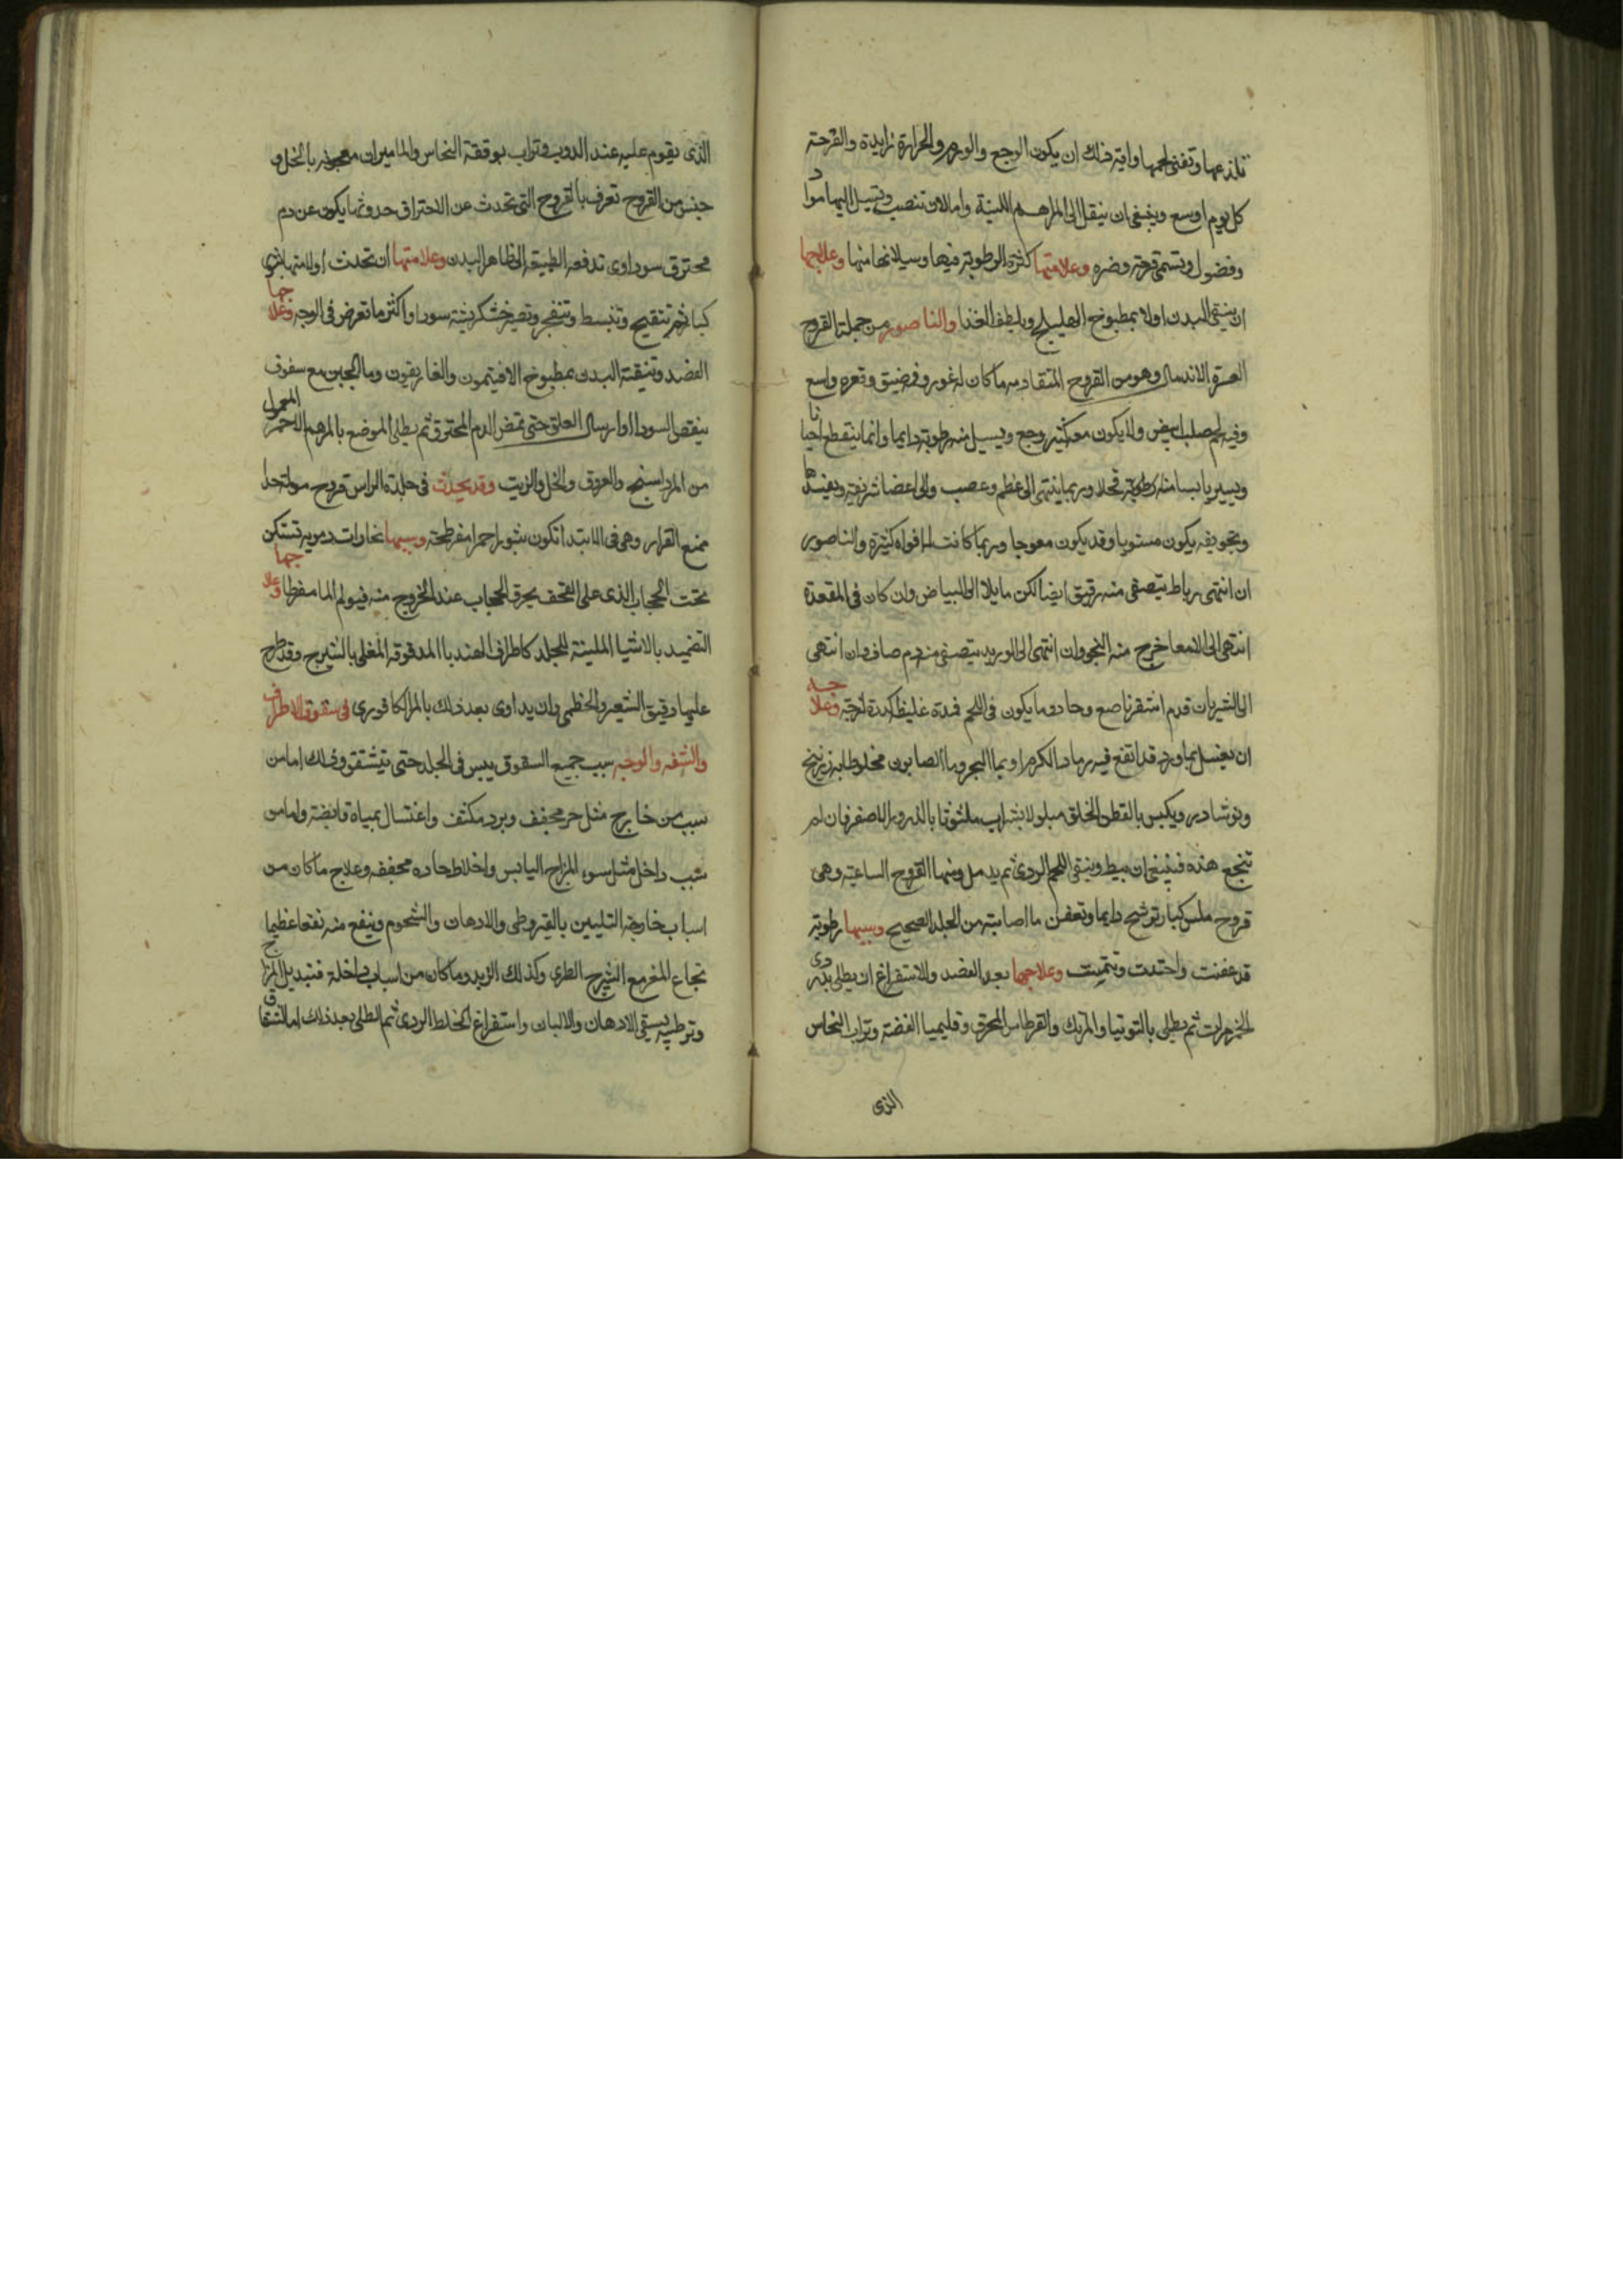 تلذعها وتفنى لحمها واية ذلك ان يكون الوجع والورم والحرارة زايدة والقرحة
كل يوم اوسع وينبغى ان ينقل الى المراهم اللينة واما لان تنصب وتسيل اليها مواد
وفضول وتسمى قرحة وضره وعلامتها كثرة الرطوبة فيها وسيلانها منها وعلاجها
ان ينقى البدن اولا بمطبوخ الهليلج ويلطف الغذا والناصور من جملة القروح
العسرة الاندمال وهو من القروح المتقادمه ما كان له غور وفم ضيق وقعره واسع
وفيه لحم صلب ابيض ولا يكون معه كثير وجع ويسيل منه رطوبة دايما وانما ينقطع احيانا
ويسير يابسا منه رطوبة قحلا وربما ينتهى الى عظم وعصب والى اعضا شريفة ويفسدها
وتجويفه يكون مستويا وقد يكون معوجا وربما كانت لها افواه كثيرة والناصور
ان انتهى رباط يتصفى منه رقيق ايضا لكن مايلا الى البياض وان كان فى المقعدة
انتهى الى الامعا خرج منه النجو وان انتهى الى الوريد يتصفى منه دم صاف وان انتهى
الى الشريان فدم اشقر ناصع وحاد وما يكون فى اللحم فمدة غليظة كدة لزجة وعلاجه
ان يغسل بماورد قد انقع فيه رماد الكرم او بما البحر وما الصابون مخلوطا به زرنيخ
ونوشادر ويكبس بالقطن الخلق مبلولا بشراب ملثوثا بالذرور الاصفر فان لم
تنجع هذه فينبغى ان يبط وينقى اللحم الردى ثم يدمل ومنها القروح الساعية وهى
قروح ملس كبار ترشح دايما وتعفن ما اصابته من الجلد الصحيح وسببها رطوبة
قد عفنت واحتدت وعلاجها بعد الفصد والاستفراغ ان يطلى بدردى
الخمر مرات ثم يطلى بالتوتيا والمرتك والقرطاس المحرق وقليميا الفضة وتراب النحاس
الذى
الذى يقوم عليه عند الذوب وتراب بوققة النحاس والماميران معجونه بالخل و
جنس من القروح تعرف بالقروح التى تحدث عن الاحتراق حدوثها يكون عن دم
محترق سوداوى تدفعه الطبيعة الى ظاهر البدن وعلامتها ان تحدث اولا منها بثور
كبار ثم تتقيح وتنبسط وتنفجر وتصير خشكريشة سودا واكثر ما تعرض فى الوجه وعلاجها
الفصد وتنقية البدن بمطبوخ الافيتمون والغاريقون وما الجبن مع سفوف
ينقص السودا او ارسال العلق حتى تمص الدم المحترق ثم يطلى الموضع بالمرهم الاحمر المعمول
من المرداسنج والعروق والخل والزيت وقد يحدث فى جلدة الراس قروح مولمة جدا
تمنع القرار وهى فى الابتدا تكون بثورا حمرا مفرطحة وسببها بخارات دموية تستكن
تحت الحجاب الذى على القحف يحرق الحجاب عند الخروج منه فيولم الما مفرطا وعلاجها
التضميد بالاشيا الملينة للجلد كاطراف الهندبا المدقوقه المغلى بالشيرج وقد طرح
عليها دقيق الشعير والخطمى وان يداوى بعد ذلك بالمر الكافورى فى شقوق الاطراف
والشفه والوجه سبب جميع الشقوق يبس فى الجلد حتى يتشقق وذلك اما من
سبب من خارج مثل حر مجفف وبرد مكثف واغتسال بمياه قابضة واما من
سبب داخل مثل سوء المزاج اليابس واخلاط حاده مجففه وعلاج ما كان من
اسباب خارجة التليين بالقيروطى والادهان والشحوم وينفع منه نفعا عظيما
نخاع المخ مع الشيرج الطرى وكذلك الزبد وما كان من اسباب داخلة فتبديل المزاج
وترطيبه بسقى الادهان والالبان واستفراغ الخلط الردى ثم الطلى بعد ذلك اما الشقاق